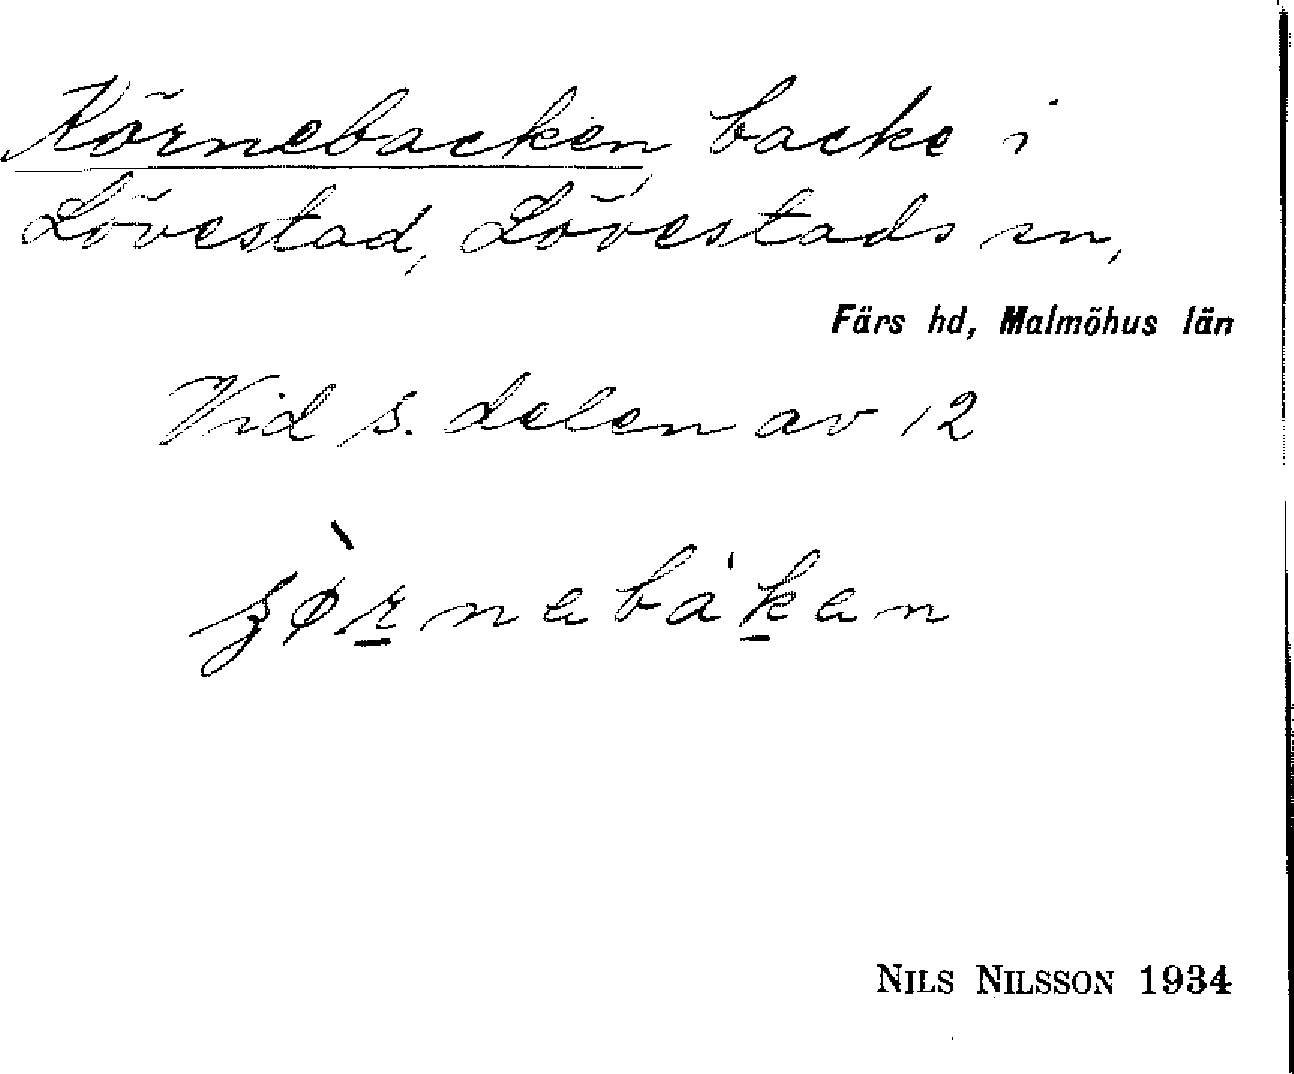 Körnebacken backe i
Lövestad, Lövestads sn,
Färs hd, Malmöhus län
Vid s. delen av 12
NILS NILSSON 1934